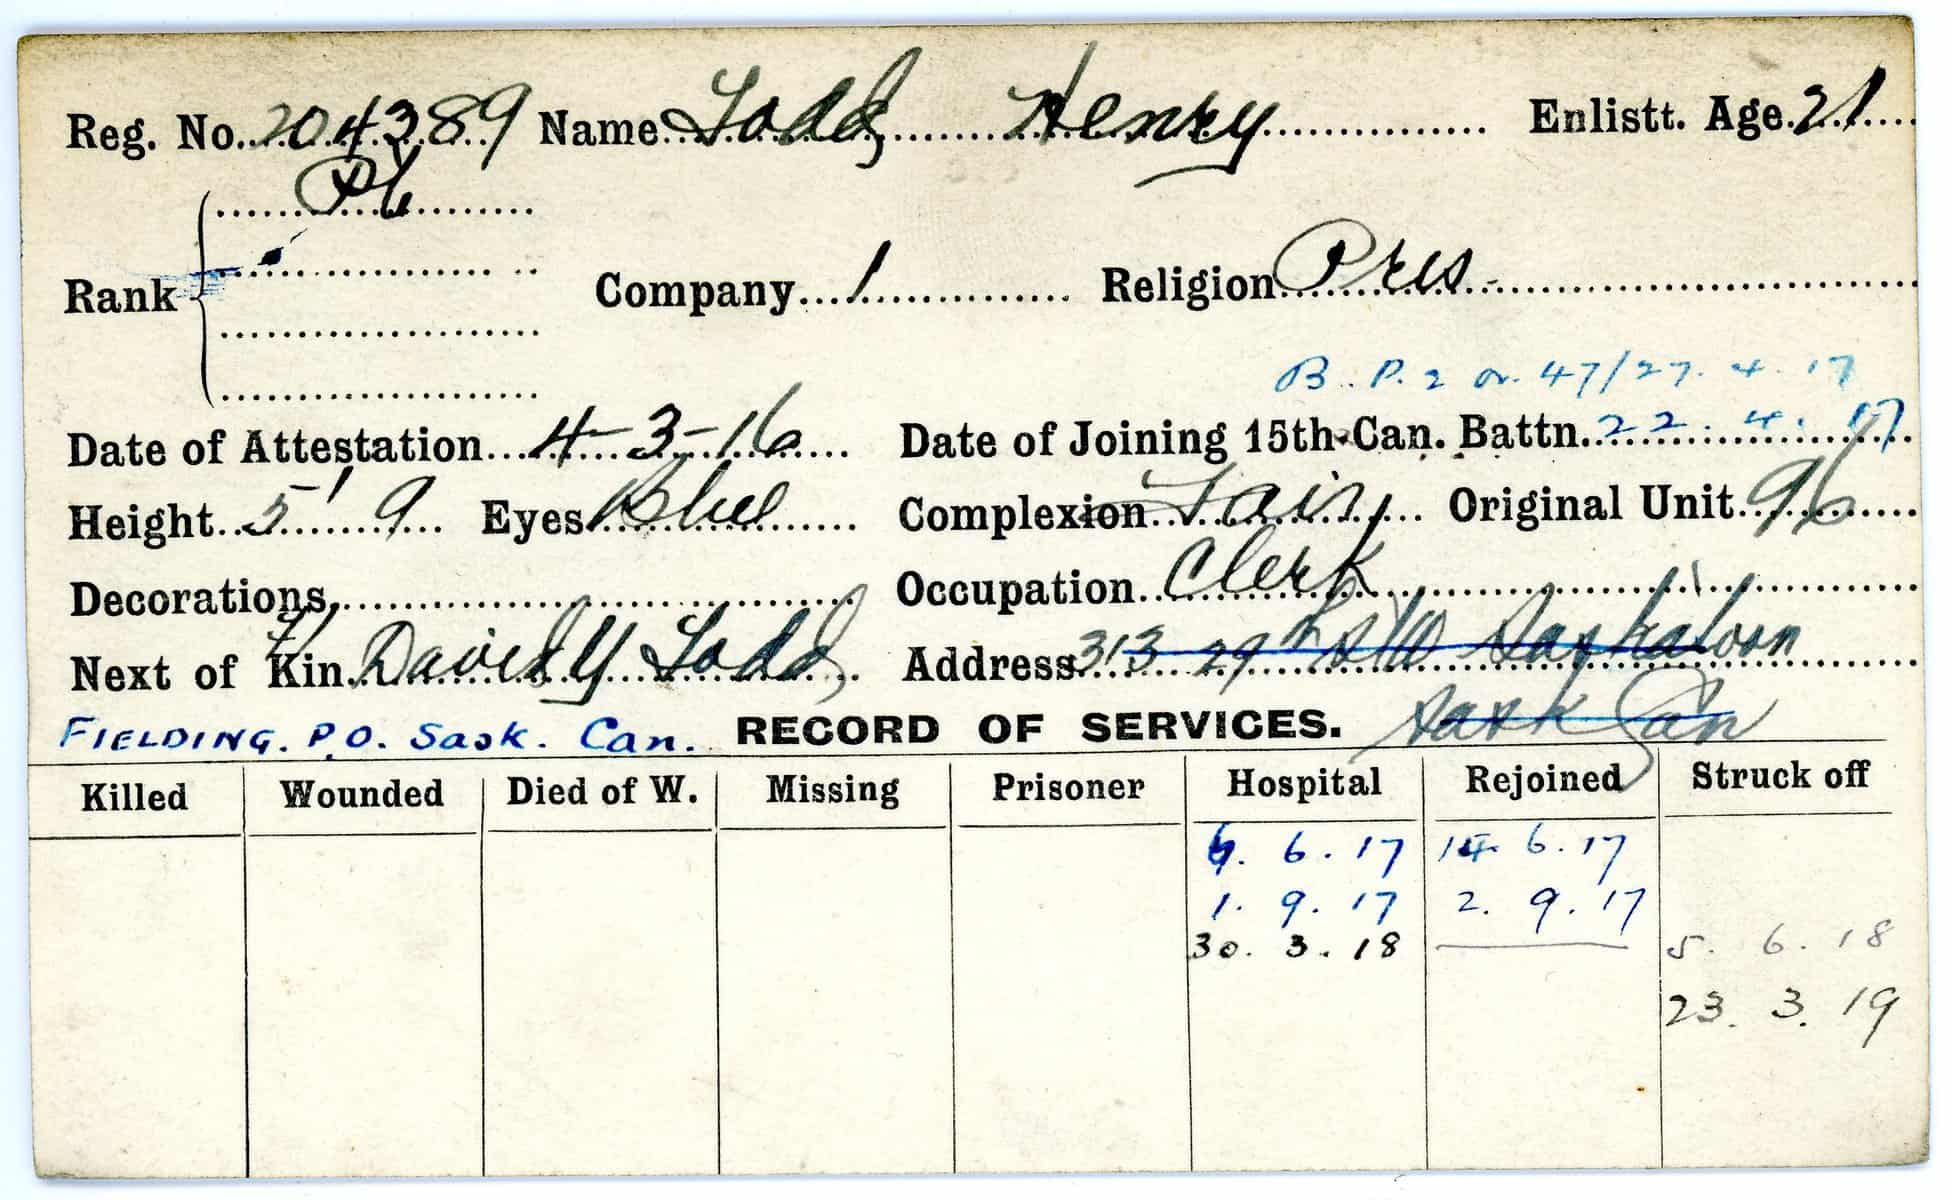 Reg. No. 204389 Name Todd, Henry Enlistt. Age 21
Pte
Rank Company 1 Religion Pres
B. P. 2 or. 47/27. 4. 17
Date of Attestation 4-3-16 Date of Joining 15th Can. Battn. 22. 4. 17
Height 5' 9 Eyes Blue Complexion Fair Original Unit 96
Decorations Occupation Clerk
Next of Kin David Y Todd, Address 313 29th St W Saskatoon
FIELDING. P.O. Sask. Can. RECORD OF SERVICES. Sask Can
Killed Wounded Died of W. Missing Prisoner Hospital Rejoined Struck off
6. 17 14. 6. 17
1. 9. 17 2. 9. 17
30. 3. 18 5. 6. 18
23. 3. 19